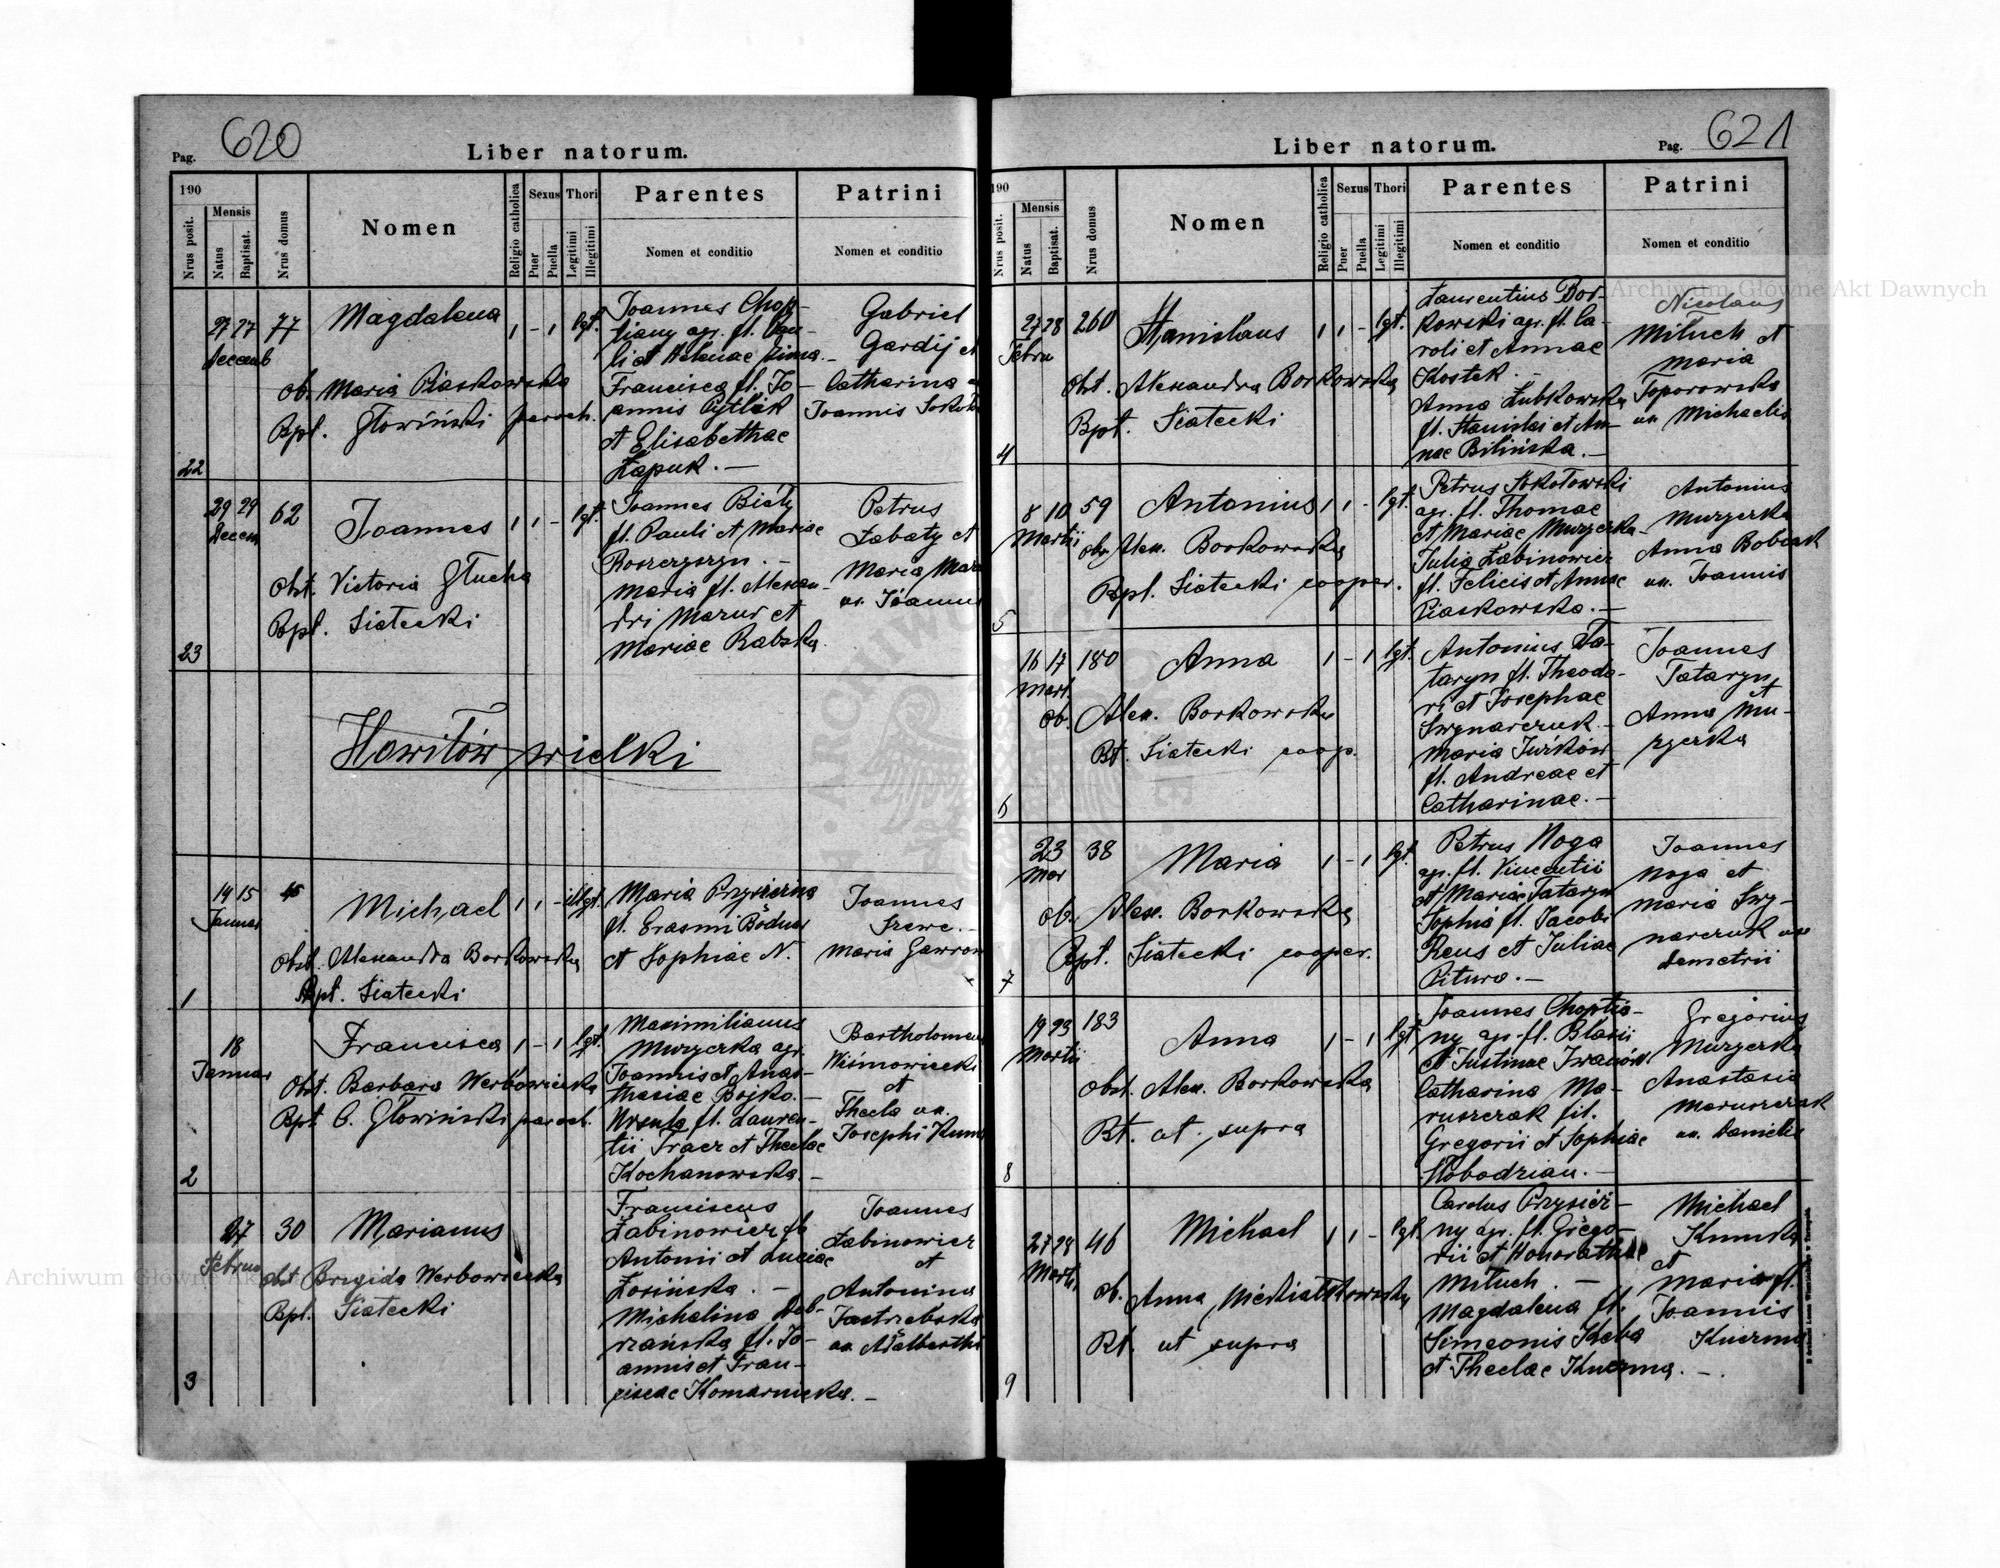 Pag. 620
Liber natorum.
190
Nrus posit.
Mensis
Natus
Baptisat.
Nrus domus
Nomen
Religio catholica
Sexus
Puer
Puella
Thori
Legitimi
Illegitimi
Parentes
Nomen et conditio
Patrini
Nomen et conditio
22
27 27
Decemb
77
Magdalena
1 - 1 lgt.
ob. Maria Piaskowska
Bpt. Głowiński paroch.
Joannes Chop-
tiany agr. fl. Pau-
li et Helenae Zima. -
Francisca fl. Jo-
annis Pytlak
et Elisabethae
Łapuk. -
Gabriel
Gardij et
Catharina
Joannis
23
29 29
Decem
62
Joannes
1 1 - lgt.
Obst. Victoria Głucha
Bpt. Siatecki
Joannes Biały
fl. Pauli et Mariae
Roszczyszyn. -
Maria fl. Alexan-
dri Mazur et
Mariae Babska.
Petrus
Łabaty et
Maria
ux. Joannis
Howiłów wielki
1
14 15
Januar
Michael
1 1 - illgt.
Obst. Alexandra Borkowska
Bpt. Siatecki
Maria Przysiężna
fl. Erasmi Bodnar
et Sophiae N.
Joannes
Szewc. -
Maria Gawron
2
18
Januar
Francisca
1 - 1 lgt.
Obst. Barbara Werbowiecka
Bpt. C. Głowiński paroch.
Maximilianus
Murzecka agr.
Joannis et Anas-
thasiae Bojko. -
Ursula fl. Lauren-
tii Tracz et Theclae
Kochanowska. -
Bartholomeus
Wiśniowiecki
et
Thecla ux.
Josephi
3
27
Februar
30
Marianus
Obst. Brygida Werbowiecka
Bpt. Siatecki
Franciscus
Łabinowicz fl.
Antonii et Luciae
Łosińska. -
Michalina Deb-
rzańska fl. Jo-
annis et Fran-
ciscae Komarnicka. -
Joannes
Łabinowicz
et
Antonina
Jastrzebska
ux. Adalberthi
Liber natorum.
Pag. 621
190
Nrus posit.
Mensis
Natus
Baptisat.
Nrus domus
Nomen
Religio catholica
Sexus
Puer
Puella
Thori
Legitimi
Illegitimi
Parentes
Nomen et conditio
Patrini
Nomen et conditio
4
27 28
Febru
260
Stanislaus
1 1 - lgt.
Obst. Alexandra Borkowska
Bpt. Siatecki
Laurentius Bor-
kowski agr. fl. Ca-
roli et Annae
Kostek. -
Anna Łubkowska
fl. Stanislai et An-
nae Bilińska. -
Nicolaus
Mituch et
Maria
Toporowska
ux. Michaelis
5
8 10
Martii
59
Antonius
1 1 - lgt.
ob. Alex. Borkowska
Bpt. Siatecki cooper.
Petrus Sokołowski
agr. fl. Thomae
et Mariae Murzecka
Julia Łabinowicz
fl. Felicis et Annae
Piaskowska. -
Antonius
Murzecka
Anna Bobiak
ux. Joannis
6
16 17
Mart.
180
Anna
1 - 1 lgt.
ob. Alex. Borkowska
Bt. Siatecki coop.
Antonius Ta-
taryn fl. Theodo-
ri et Josephae
Swynarczuk. -
Maria Jurków
fl. Andreae et
Catharinae. -
Joannes
Tataryn
et
Anna Mu-
rzecka
7
23
Mar
38
Maria
1 - 1 lgt.
ob. Alex. Borkowska
Bpt. Siatecki cooper.
Petrus Noga
agr. fl. Vincentii
et Mariae Tataryn
Sophia fl. Jacobi
Reus et Juliae
Pituro. -
Joannes
Noga et
Maria Swy-
narczuk ux
Demetrii
8
19 23
Martii
183
Anna
1 - 1 lgt.
Obst. Alex. Borkowska
Bt. ut supra
Joannes Choptia-
ny agr. fl. Blasii
et Justinae Iwanów.
Catharina Ma-
ruszczak fil.
Gregorii et Sophiae
Słobodzian. -
Gregorius
Murzecka
Anastasia
Maruszczak
ux. Danielis
9
27 28
Martii
46
Michael
1 1 - lgt.
ob. Anna
Bt. ut supra
Carolus Przysięż-
ny agr. fl. Grego-
rii et Honorathae
Mituch. -
Magdalena fl.
Simeonis Keba
et Theclae Kuczma. -
Michael
et
Maria fl.
Joannis
Kuczma
Archiwum Główne Akt Dawnych
Archiwum Główne Akt Dawnych